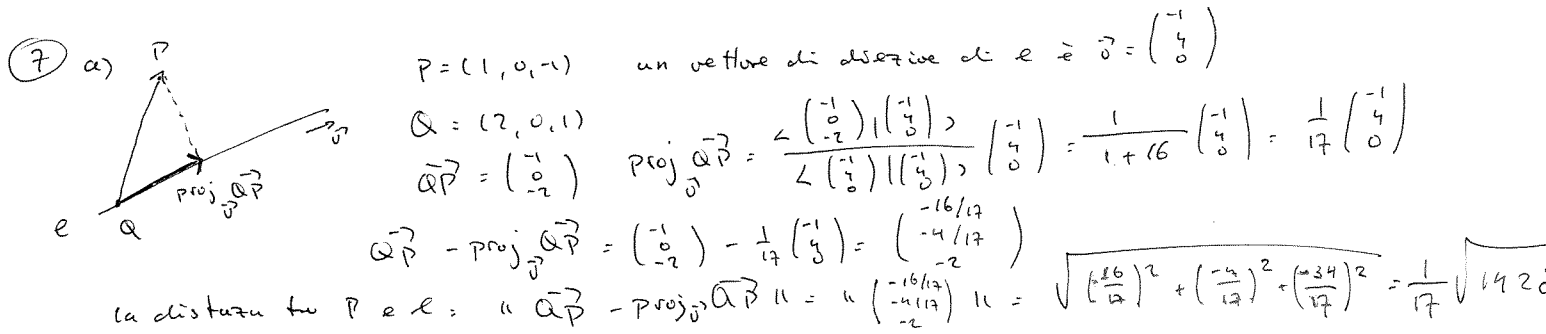 7 a) P P = (1, 0, -1) un vettore di direzione di l è v⃗ = (-1 4 0)
Q = (2, 0, 1)
QP⃗ = (-1 0 -2) proj_v⃗ QP⃗ = <(-1 0 -2)|(-1 4 0)> / <(-1 4 0)|(-1 4 0)> (-1 4 0) = 1/(1+16) (-1 4 0) = 1/17 (-1 4 0)
v⃗
proj_v⃗ QP⃗
l Q
QP⃗ - proj_v⃗ QP⃗ = (-1 0 -2) - 1/17 (-1 4 0) = (-16/17 -4/17 -2)
la distanza tra P e l : || QP⃗ - proj_v⃗ QP⃗ || = || (-16/17 -4/17 -2) || = √((-16/17)² + (-4/17)² + (-34/17)²) = 1/17 √142